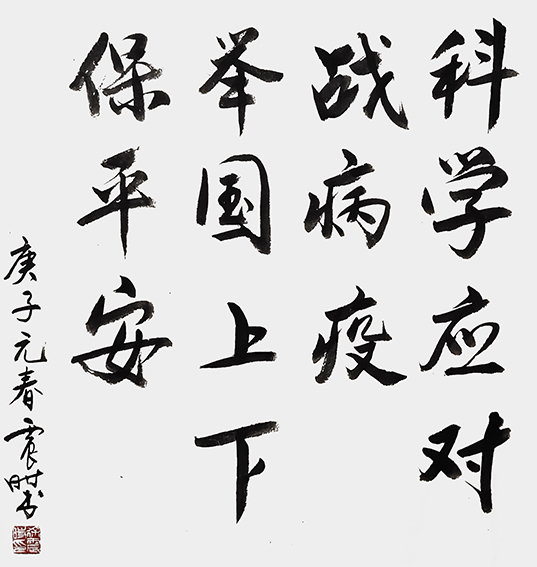 科学应对
战病疫
举国上下
保平安
庚子元春震时书